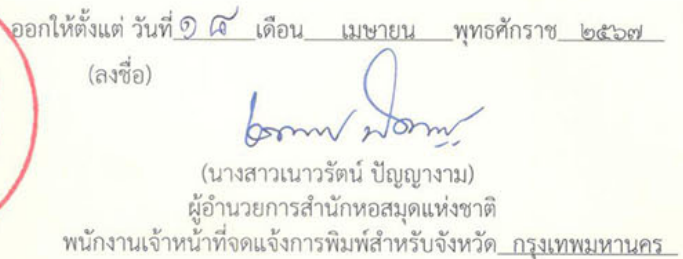 ออกให้ตั้งแต่ วันที่ ๑๘ เดือน เมษายน พุทธศักราช ๒๕๖๗
(ลงชื่อ)
(นางสาวเนาวรัตน์ ปัญญางาม)
ผู้อำนวยการสำนักหอสมุดแห่งชาติ
พนักงานเจ้าหน้าที่จดแจ้งการพิมพ์สำหรับจังหวัด กรุงเทพมหานคร